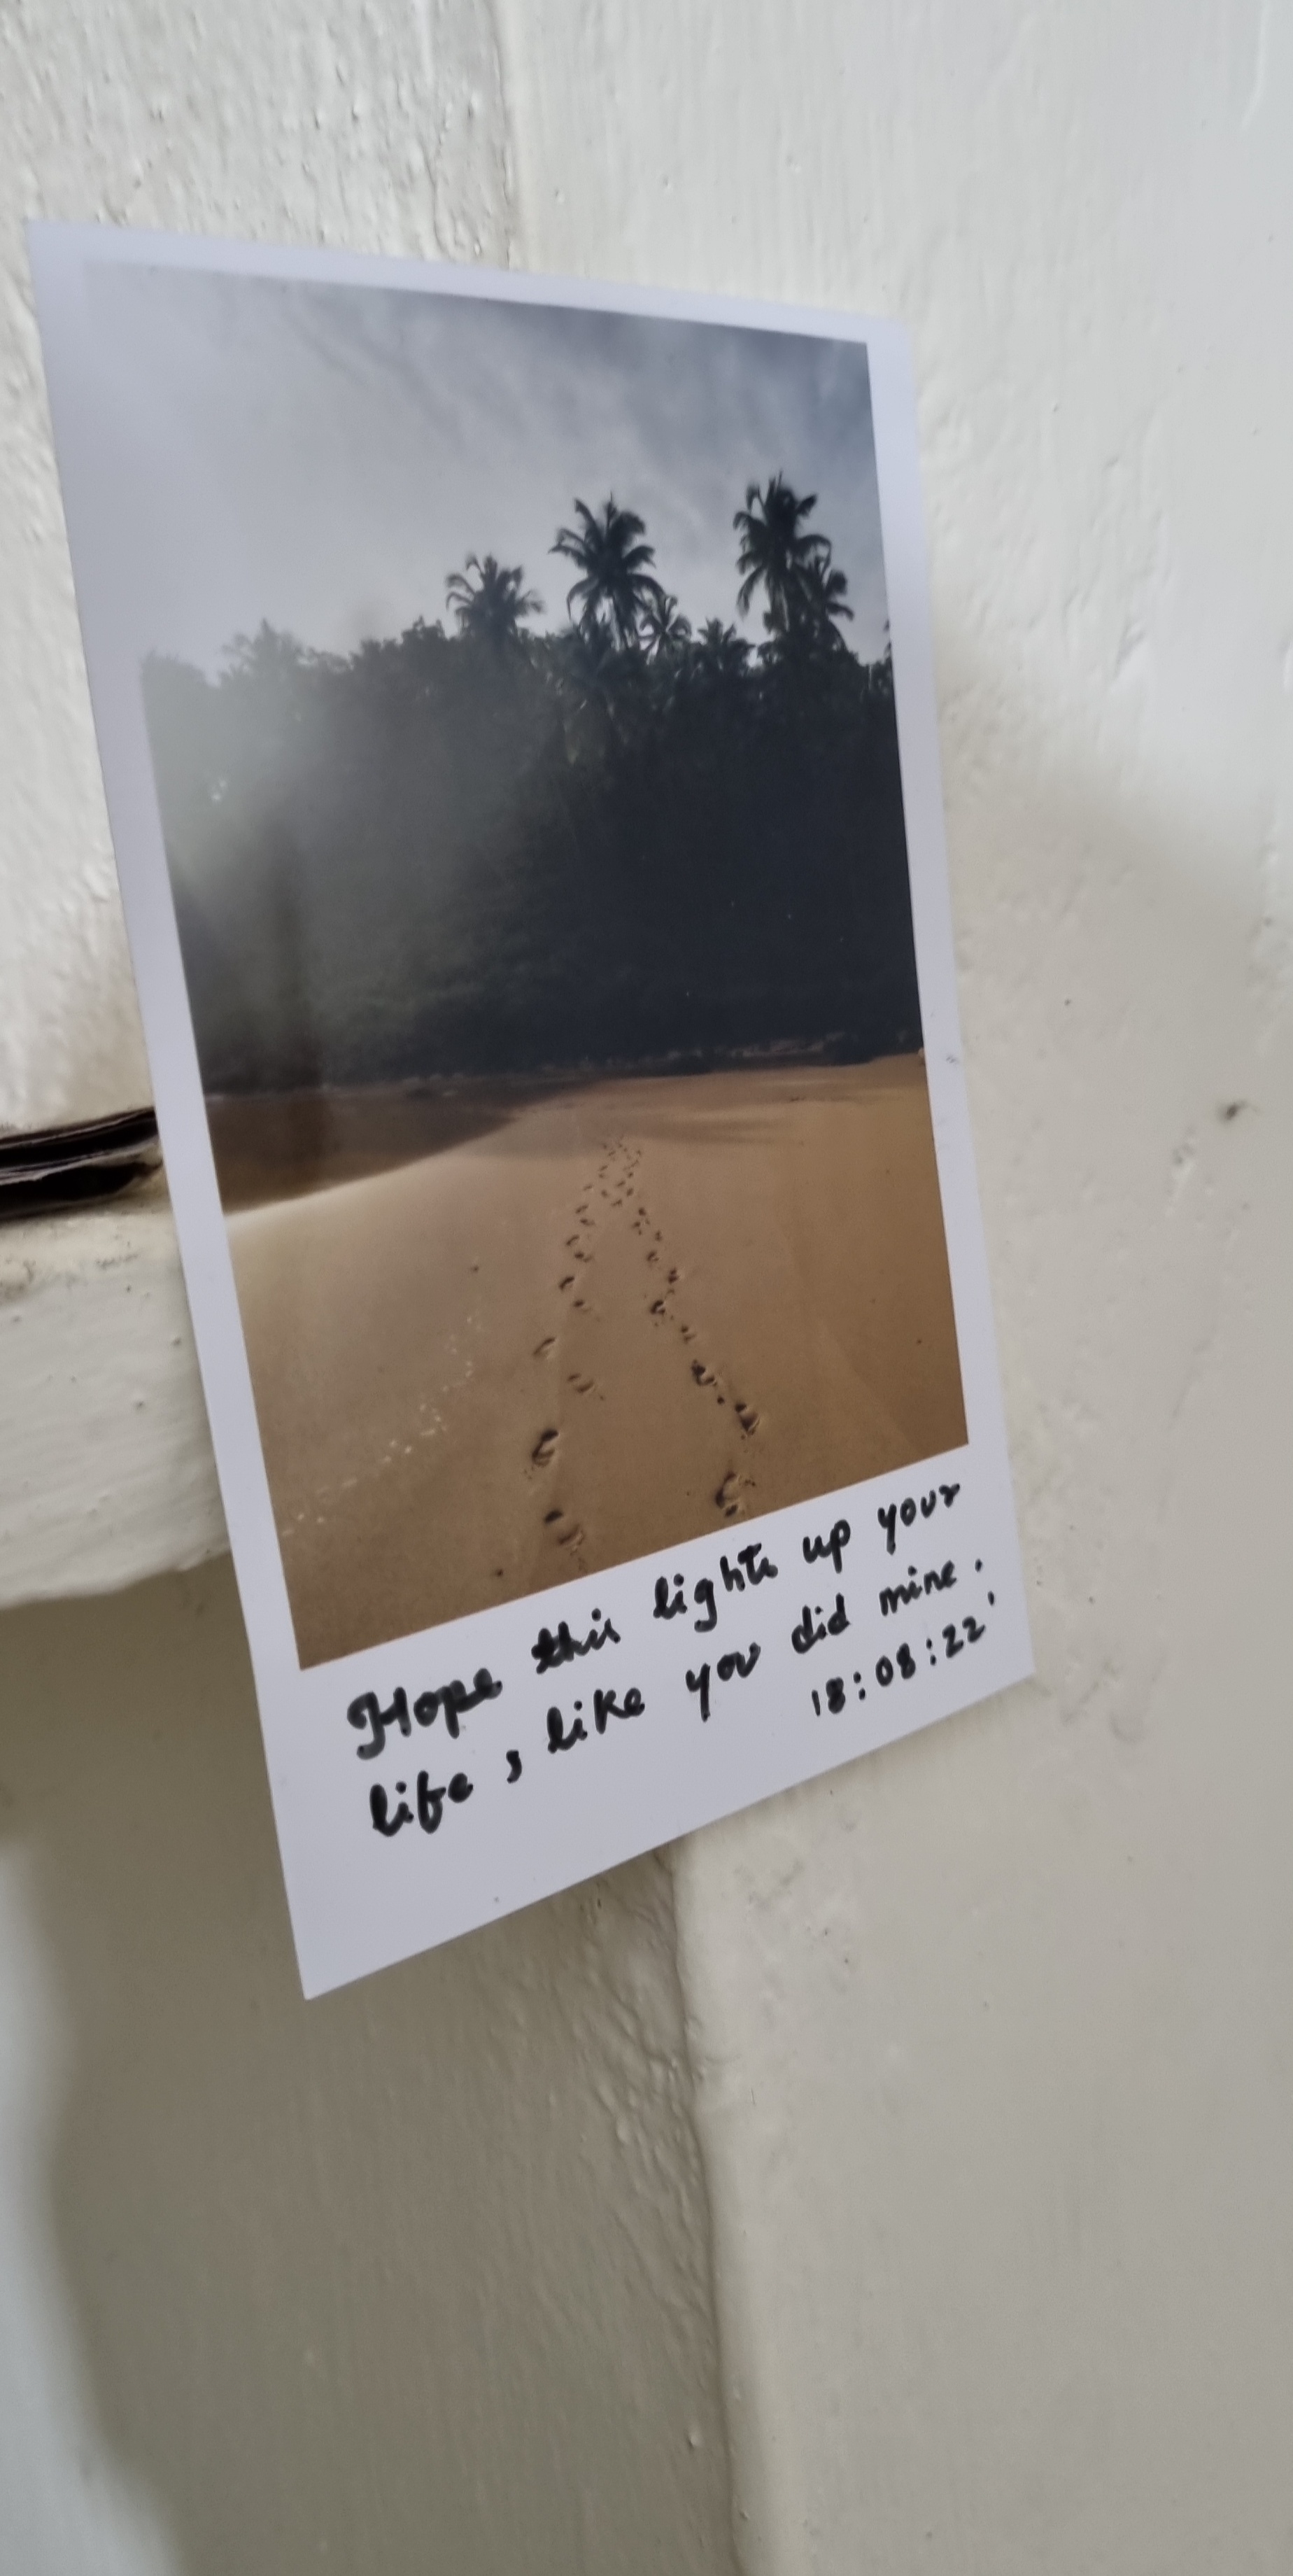 Hope this lights up your
life, like you did mine.
18:08:22'